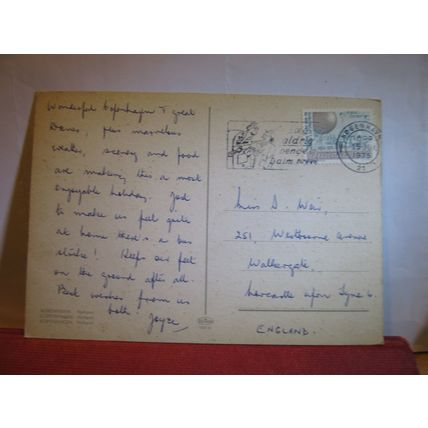 Wonderful Copenhagen & great
Danes, plus marvellous
weather, scenery and food
are making this a most
enjoyable holiday. Just
to make us feel quite
at home there's a bus
strike! Keeps our feet
on the ground after all.
Best wishes from us
both
Joyce
aldrig
penge
1975
Miss D. Weir,
251, Westbourne Avenue,
Walkergate,
Newcastle upon Tyne 6.
ENGLAND.